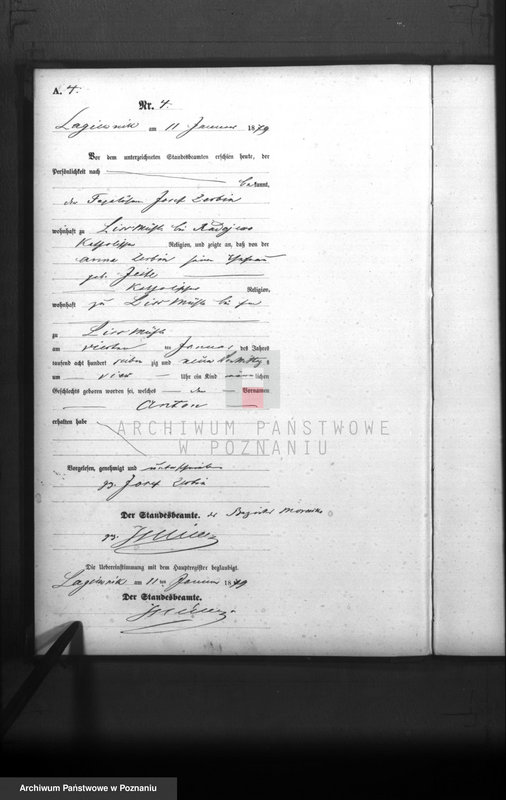 A. 4.
Nr. 4.
Lagiewnik am 11 Januar 1879
Vor dem unterzeichneten Standesbeamten erschien heute, der
Persönlichkeit nach
bekannt,
der Josef
wohnhaft zu bei Radojewo
Katholischer Religion, und zeigte an, daß von der
Anna seiner Ehefrau
geb.
Katholischer Religion,
wohnhaft zu bei
zu
am vierten ten Januar des Jahres
tausend acht hundert sieben zig und neun Vormittag s
um vier Uhr ein Kind männlichen
Geschlechts geboren worden sei, welches den Vornamen
Anton
erhalten habe
ARCHIWUM PAŃSTWOWE
W POZNANIU
Vorgelesen, genehmigt und unterschrieben
gz. Josef
Der Standesbeamte. des Bezirks
gz.
Die Uebereinstimmung mit dem Hauptregister beglaubigt.
Lagiewnik am 11 ten Januar 1879
Der Standesbeamte.
Archiwum Państwowe w Poznaniu